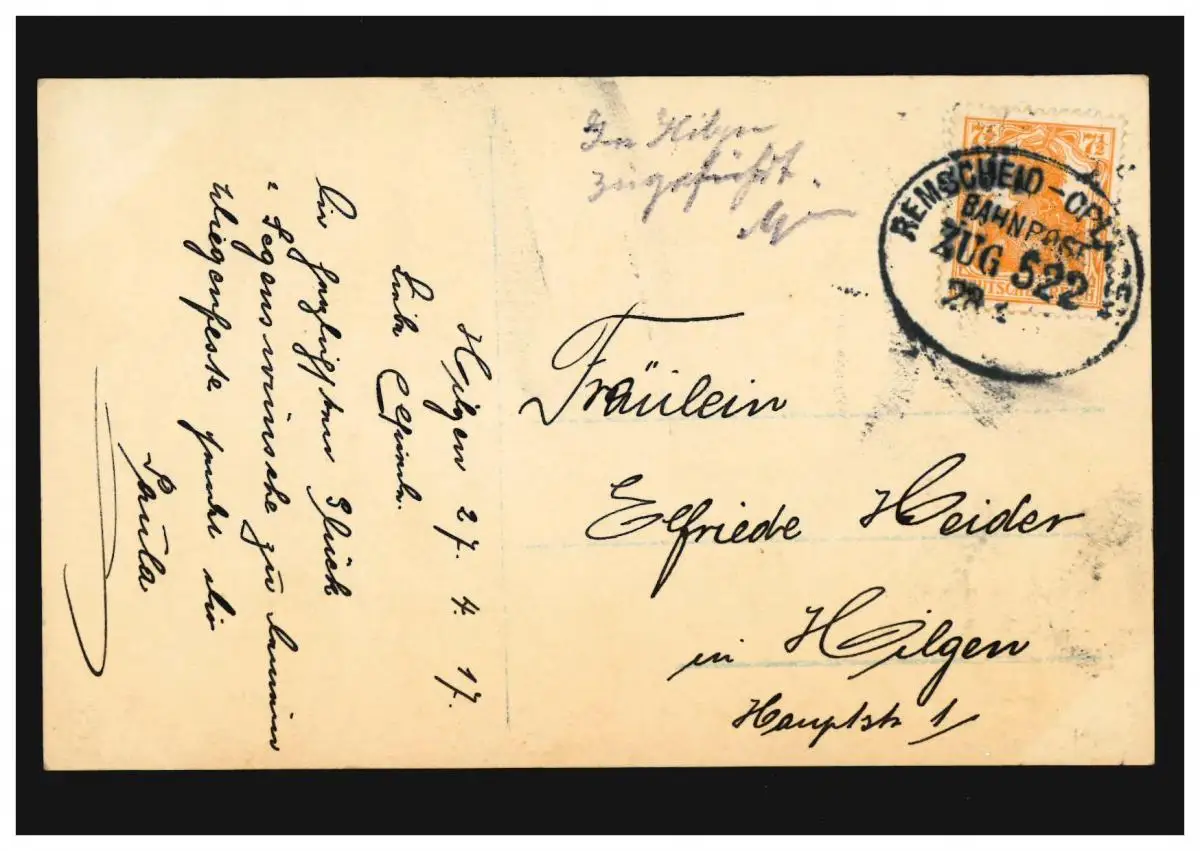 Hilgen 27. 4. 17.
Liebe
Die herzlichsten Glück
= Segenswünsche zu deinem
Wiegenfeste sendet dir
Paula
In Hilgen
zugeführt.
7½ 7½
REMSCHEID - OPLADEN
BAHNPOST
ZUG 522
28 4
DEUTSCHES REICH
Fräulein
Elfriede Heider
in Hilgen
Hauptstr 1